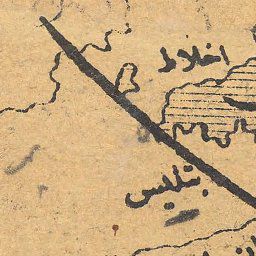 اخلاط
بتليس